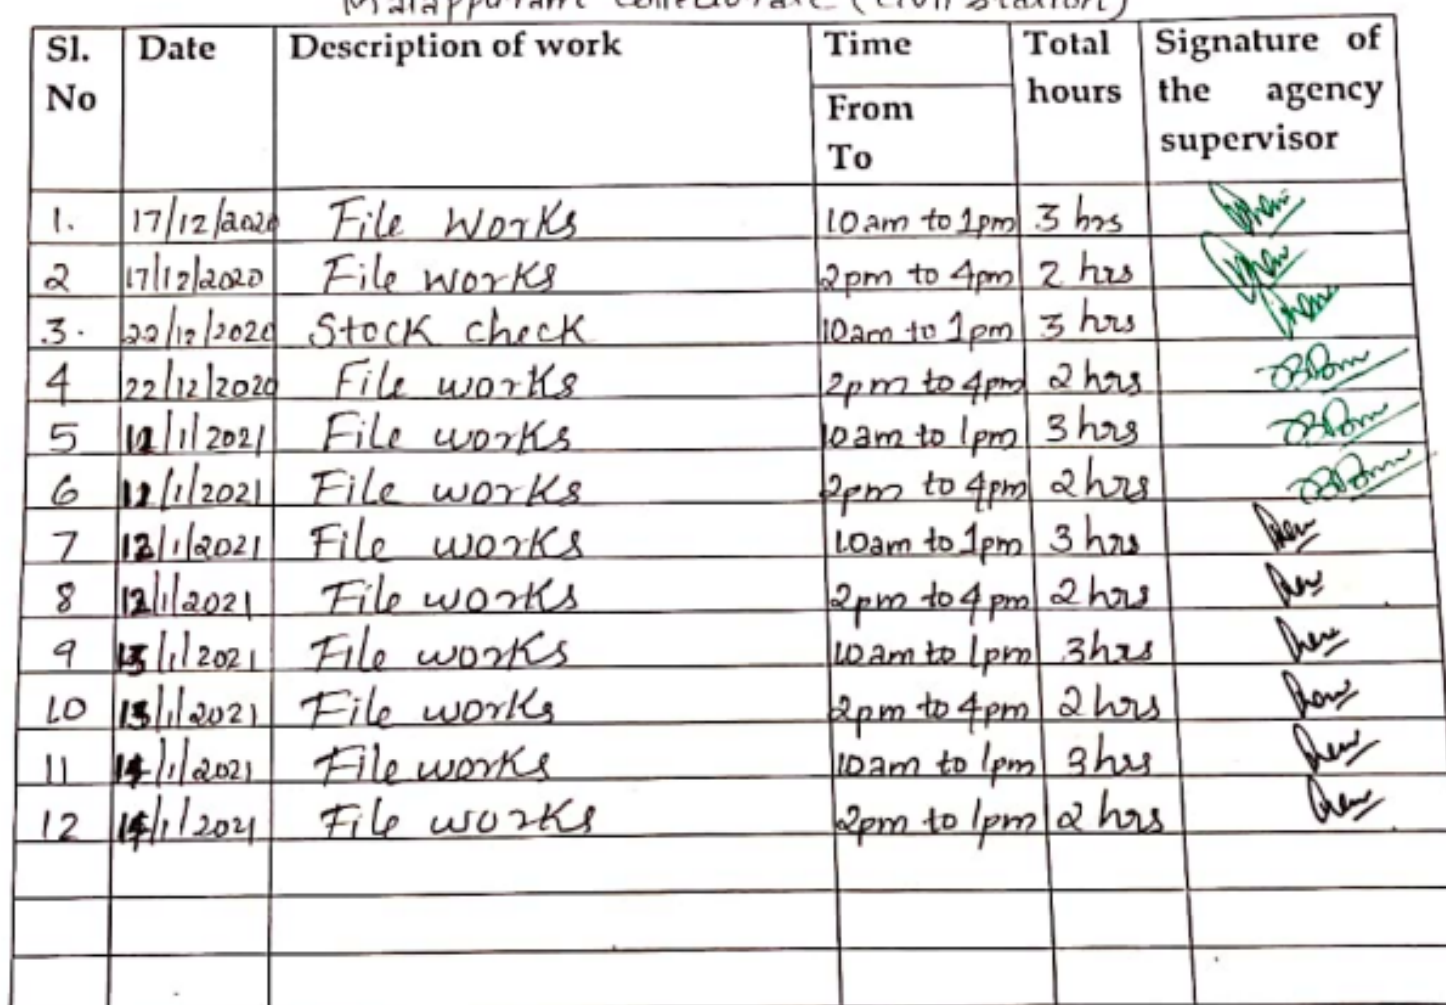 Malappuram Collectorate (Civil Station)
Sl. No Date Description of work Time From To Total hours Signature of the agency supervisor
1. 17/12/2020 File Works 10am to 1pm 3 hrs
2 17/12/2020 File works 2pm to 4pm 2 hrs
3. 22/12/2020 Stock check 10am to 1pm 3 hrs
4 22/12/2020 File works 2pm to 4pm 2 hrs
5 /1/2021 File works 10am to 1pm 3 hrs
6 /1/2021 File works 2pm to 4pm 2 hrs
7 12/1/2021 File works 10am to 1pm 3 hrs
8 12/1/2021 File works 2pm to 4pm 2 hrs
9 13/1/2021 File works 10am to 1pm 3hrs
10 13/1/2021 File works 2pm to 4pm 2 hrs
11 14/1/2021 File works 10am to 1pm 3hrs
12 14/1/2021 File works 2pm to 1pm 2 hrs